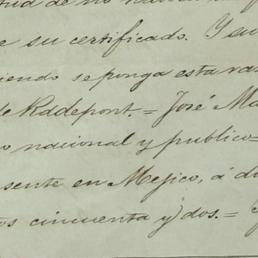 tud de no haber
e su certificado. Y su
iendo se ponga esta ra
de Raddepont.= José Ma
o nacional y publico=
sente en Mejico, á di
os cincuenta y dos.=